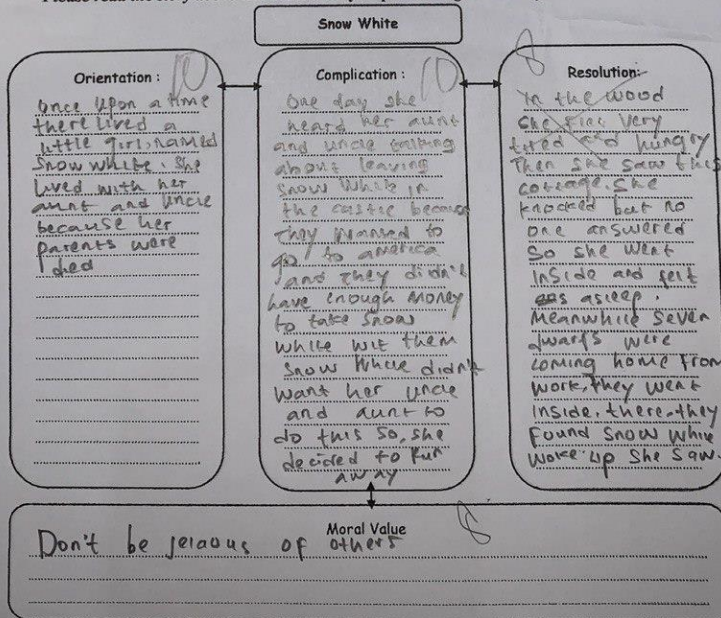 Snow White
Orientation :
10
once upon a time
there lived a
little girl, named
Snow white. She
lived with her
aunt and uncle
because her
parents were
died
Complication :
10
One day she
heard her aunt
and uncle talking
about leaving
Snow White in
the castle because
they wanted to
go to america
and they didn't
have enough money
to take snow
white wit them
Snow White didn't
want her uncle
and aunt to
do this so, she
decided to run
away
8
Resolution:
In the wood
she very
tired and hungry
Then she saw this
cottage. She
knocked but no
one answered
So she went
Inside and felt
asleep.
Meanwhile seven
dwarfs were
coming home from
work, they went
Inside. there. they
Found Snow While
Woke up She Saw.
Moral Value
8
Don't be jelaous of others